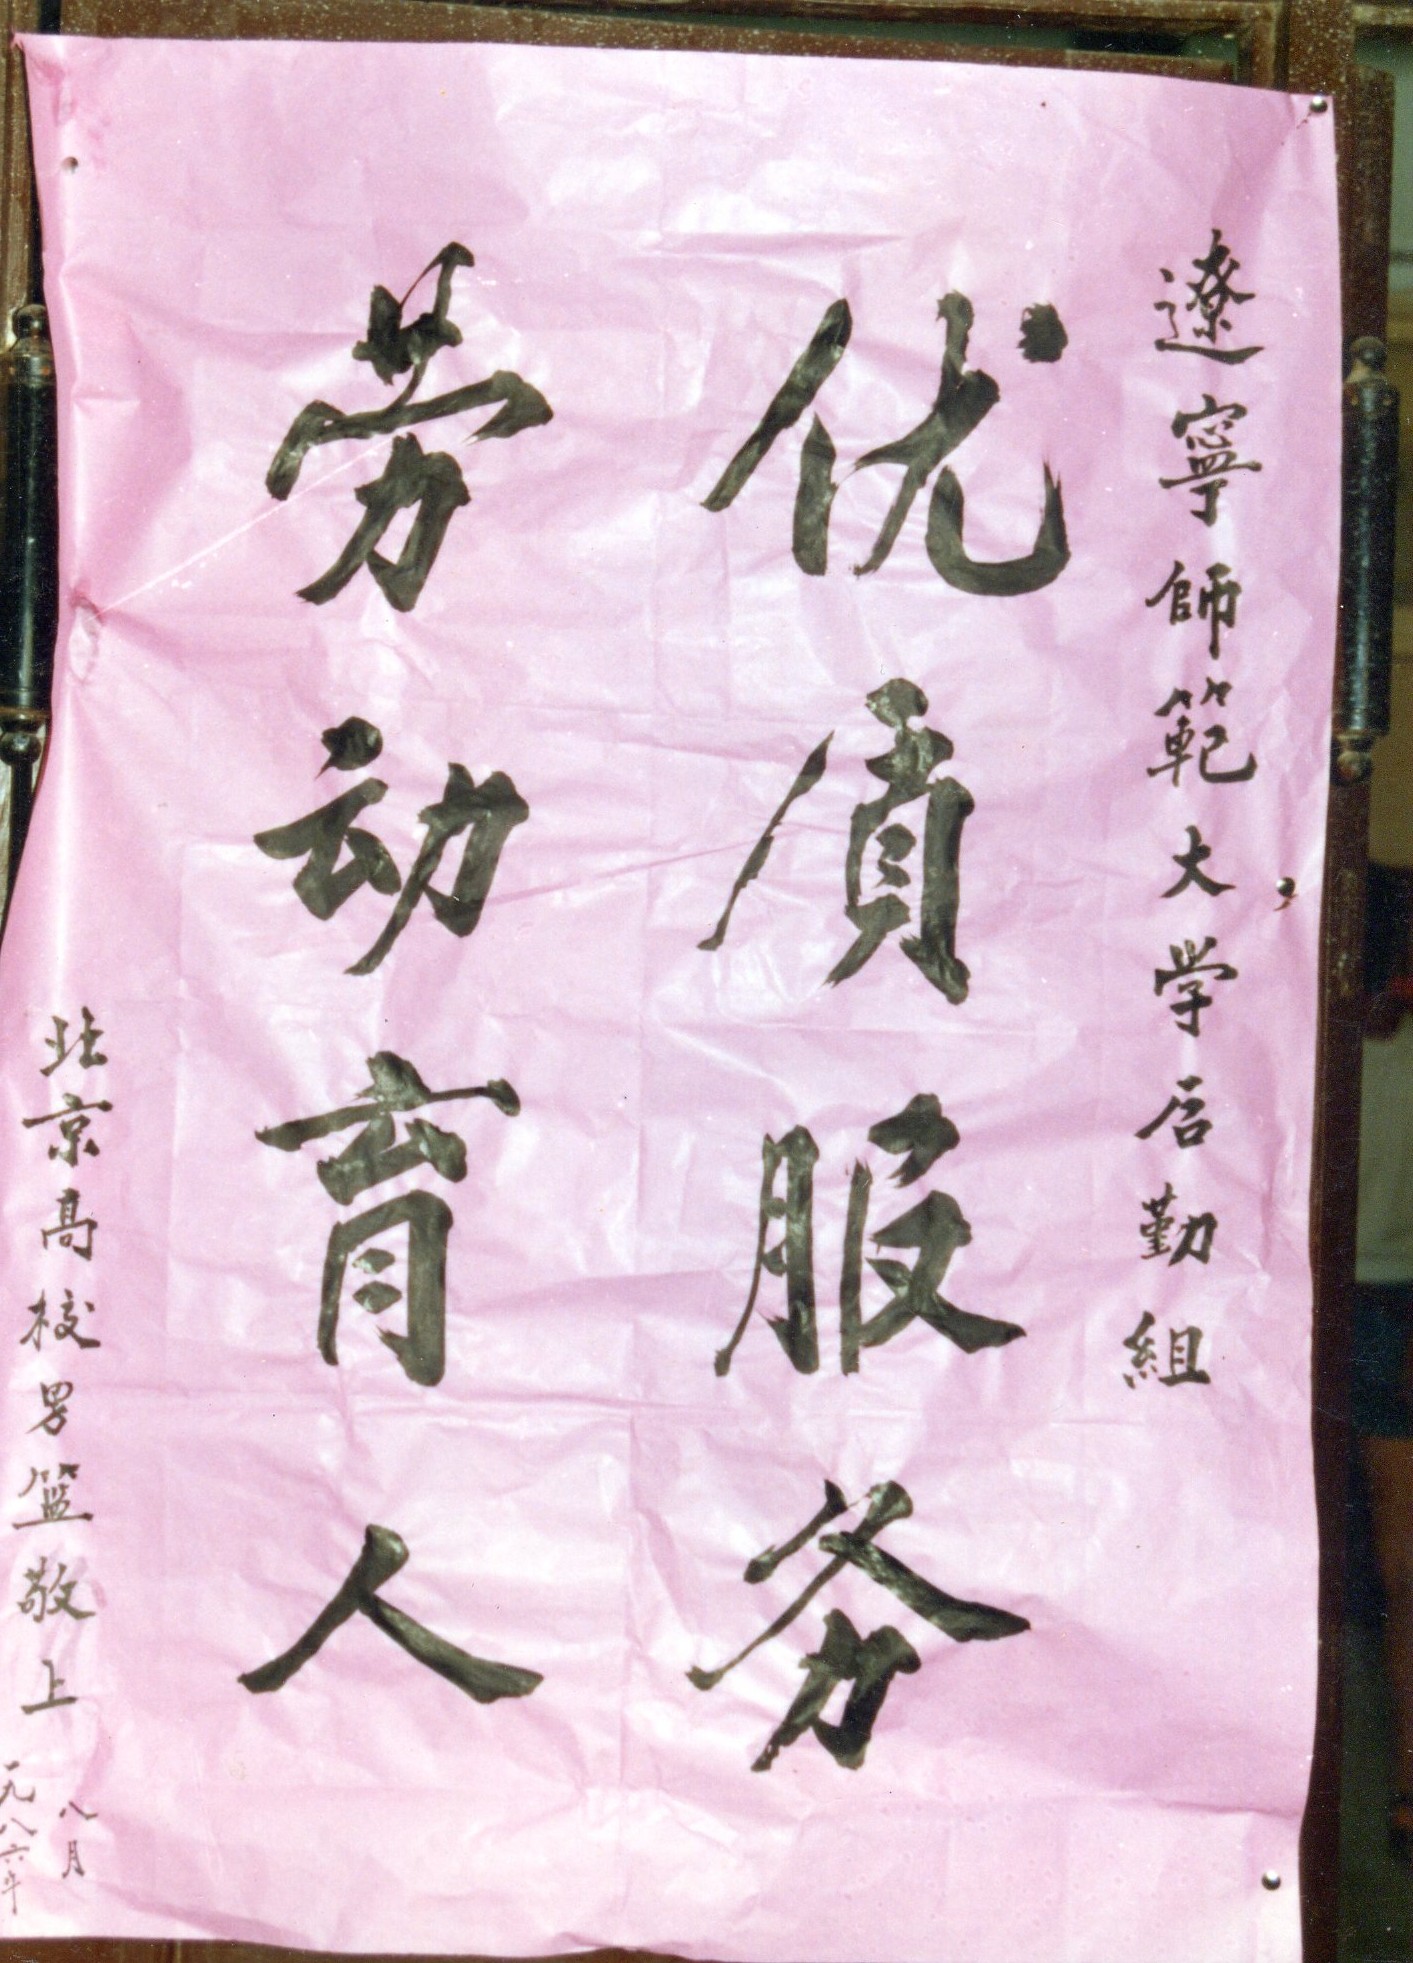 遼寧師範大学后勤组
优质服务
劳动育人
北京高校男篮敬上
一九八六年
八月